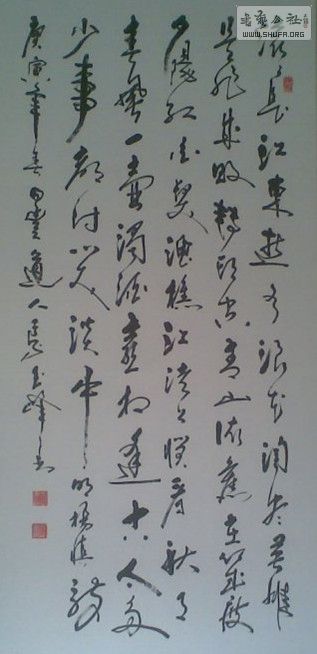 书艺公社
WWW.SHUFA.ORG
滚滚長江東逝水浪花淘尽英雄
是非成败转头空青山依旧在几度
夕陽红白发渔樵江渚上惯看秋月
春风一壶浊酒喜相逢古今多
少事都付笑谈中明杨慎词
庚寅年春道人玉峰书